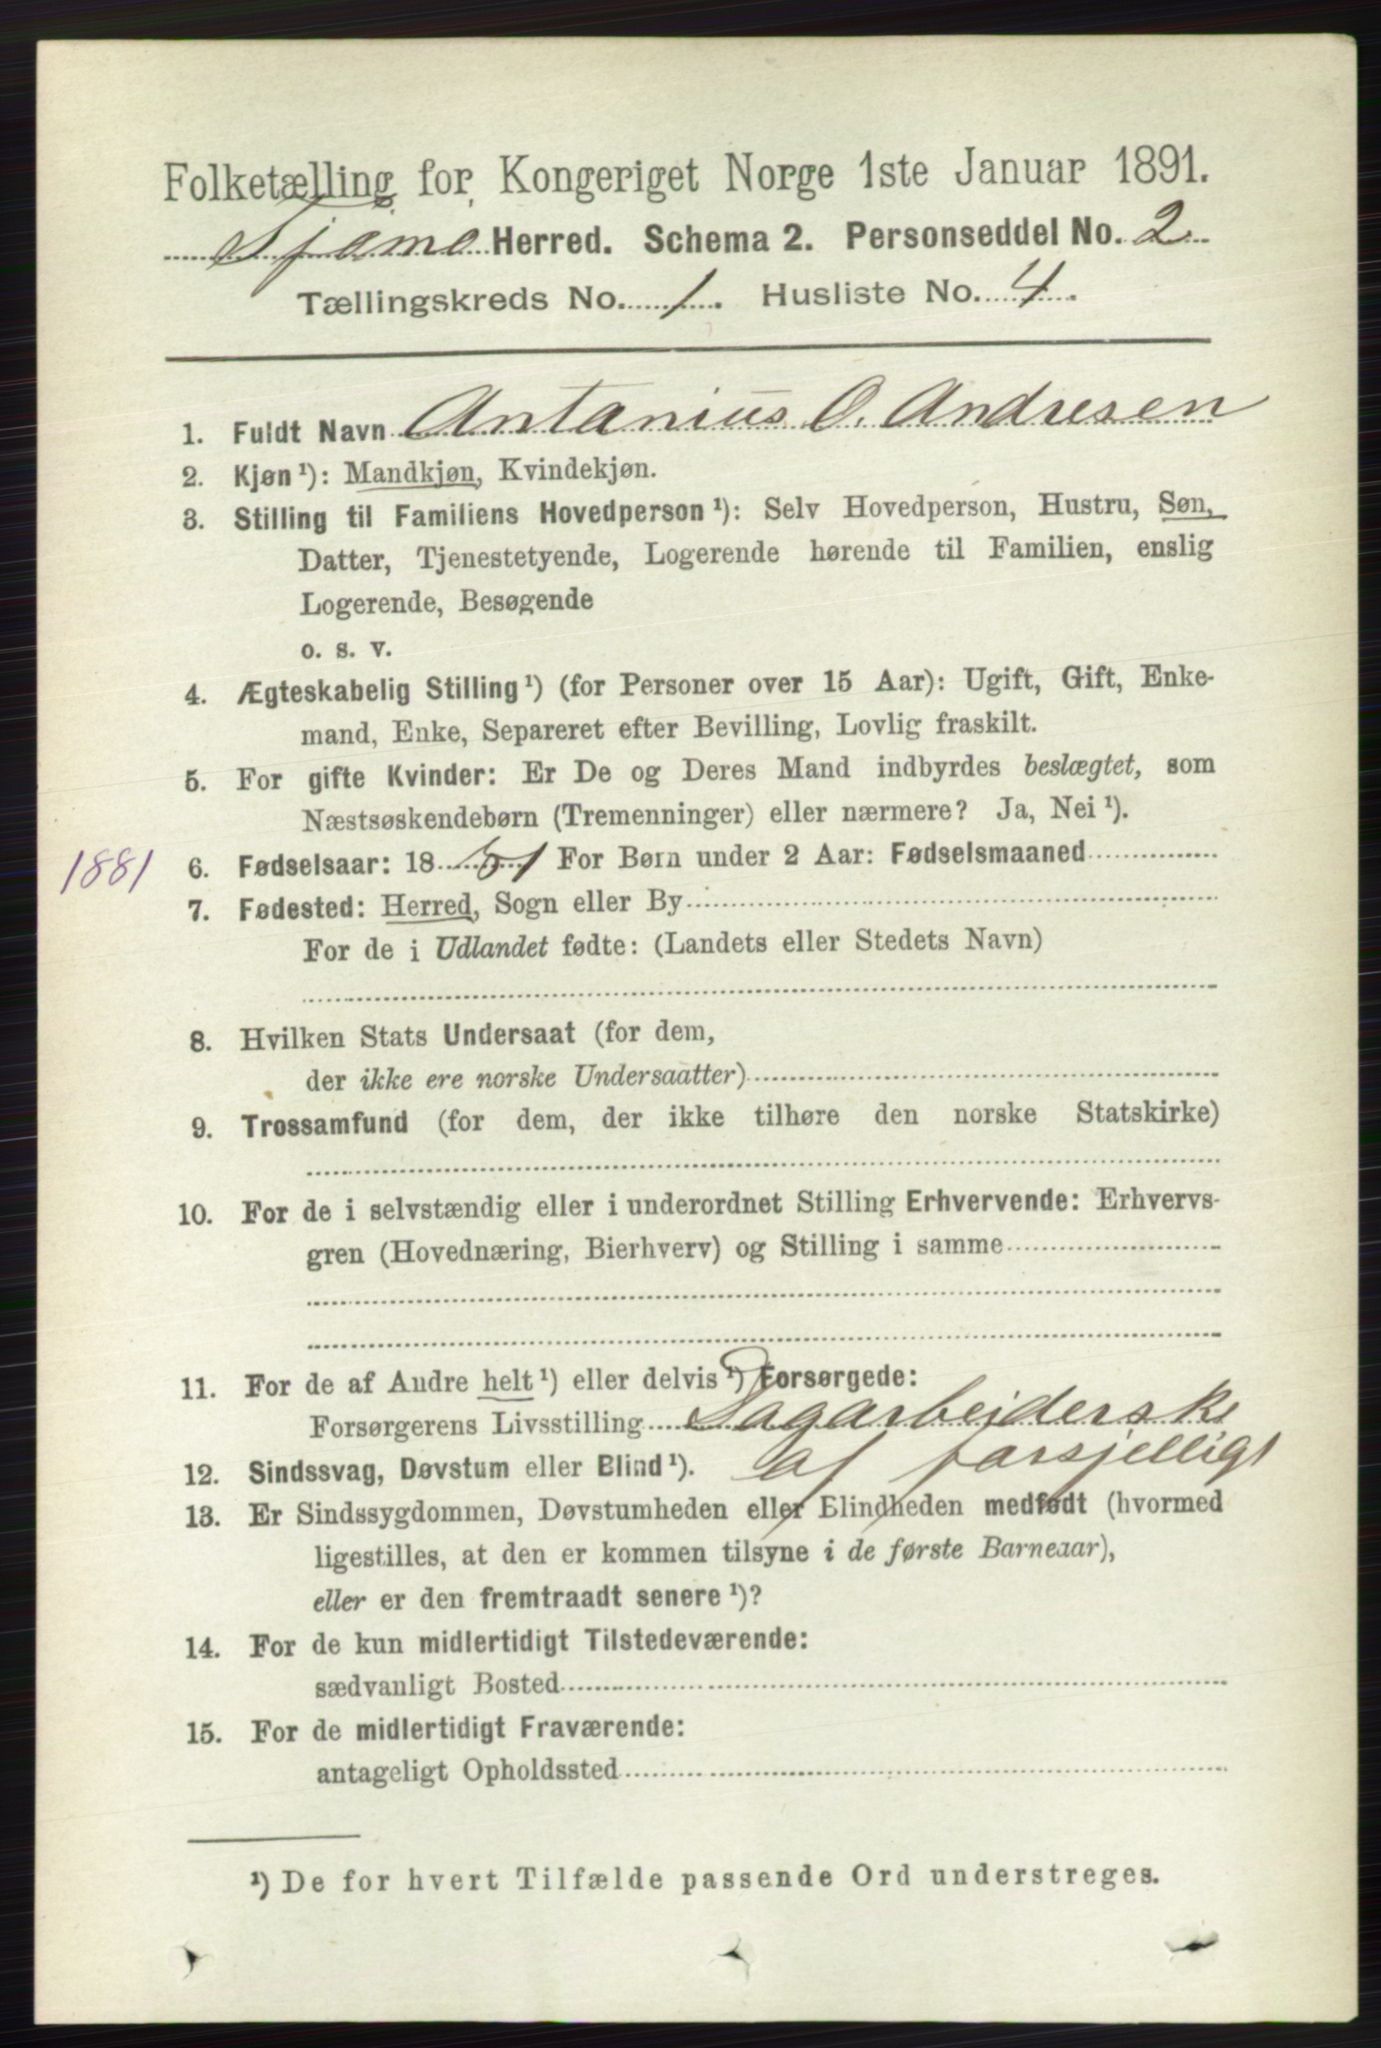 Folketælling for Kongeriget Norge 1ste Januar 1891.
Tjømø Herred. Schema 2. Personseddel No. 2
Tællingskreds No. 1. Husliste No. 4.
1. Fuldt Navn Antanius O. Andresen
2. Kjøn ¹): Mandkjøn, Kvindekjøn.
3. Stilling til Familiens Hovedperson ¹): Selv Hovedperson, Hustru, Søn,
Datter, Tjenestetyende, Logerende hørende til Familien, enslig
Logerende, Besøgende
o. s. v.
4. Ægteskabelig Stilling ¹) (for Personer over 15 Aar): Ugift, Gift, Enke-
mand, Enke, Separeret efter Bevilling, Lovlig fraskilt.
5. For gifte Kvinder: Er De og Deres Mand indbyrdes beslægtet, som
Næstsøskendebørn (Tremenninger) eller nærmere? Ja, Nei ¹).
1881
6. Fødselsaar: 1881 For Børn under 2 Aar: Fødselsmaaned
7. Fødested: Herred, Sogn eller By
For de i Udlandet fødte: (Landets eller Stedets Navn)
8. Hvilken Stats Undersaat (for dem,
der ikke ere norske Undersaatter)
9. Trossamfund (for dem, der ikke tilhøre den norske Statskirke)
10. For de i selvstændig eller i underordnet Stilling Erhvervende: Erhvervs-
gren (Hovednæring, Bierhverv) og Stilling i samme
11. For de af Andre helt ¹) eller delvis ¹) Forsørgede:
Forsørgerens Livsstilling Dagarbeider
12. Sindssvag, Døvstum eller Blind ¹). af forsjelligt
13. Er Sindssygdommen, Døvstumheden eller Blindheden medfødt (hvormed
ligestilles, at den er kommen tilsyne i de første Barneaar),
eller er den fremtraadt senere ¹)?
14. For de kun midlertidigt Tilstedeværende:
sædvanligt Bosted
15. For de midlertidigt Fraværende:
antageligt Opholdssted
¹) De for hvert Tilfælde passende Ord understreges.